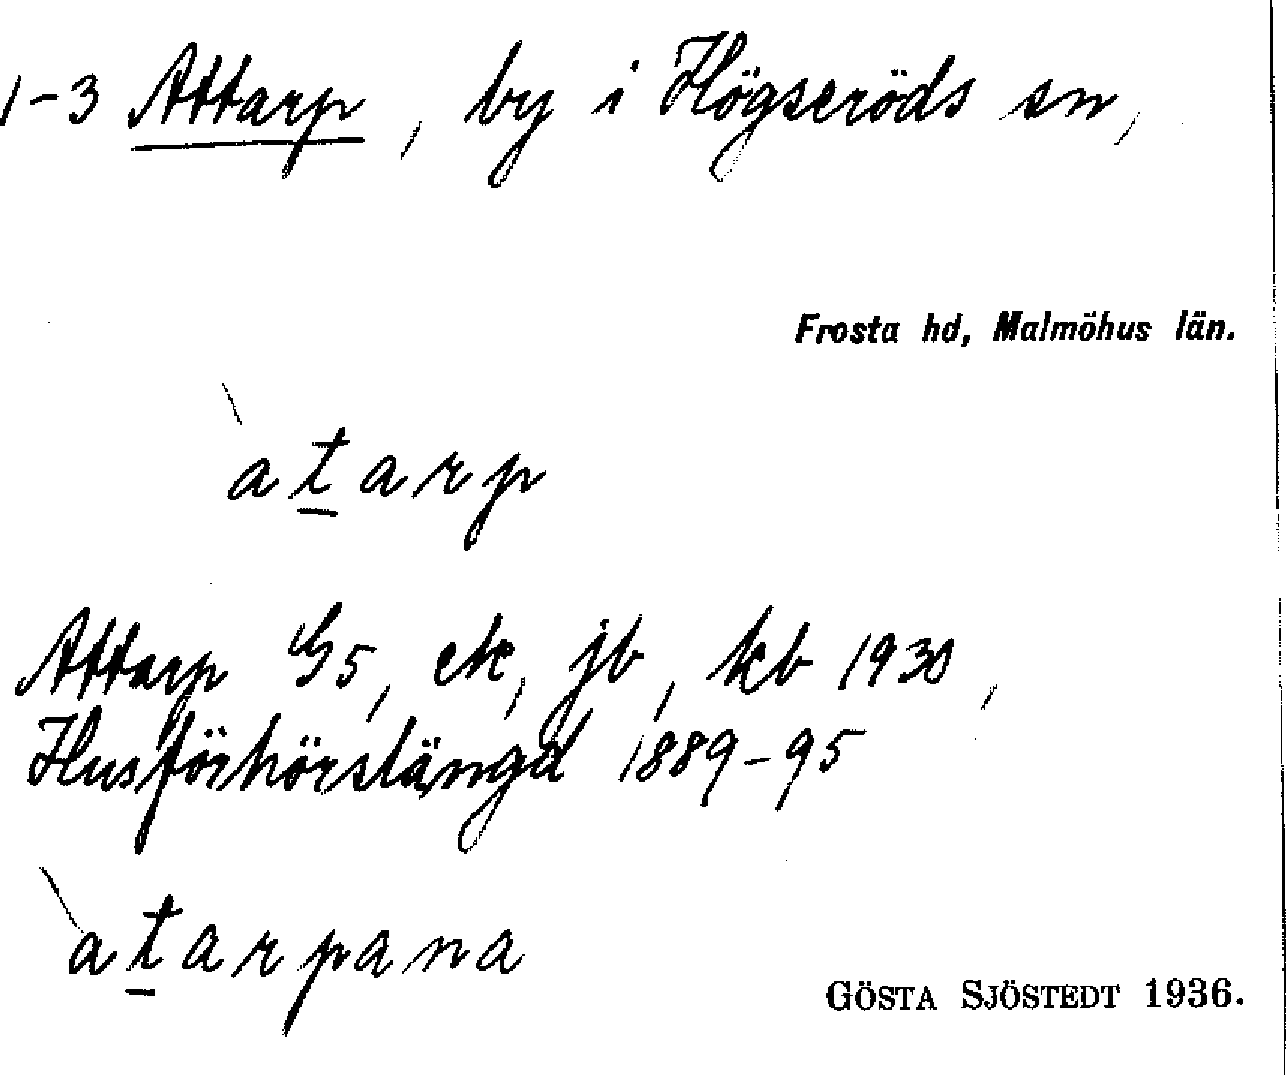 1-3 Attarp, by i Högseröds sn,
Frosta hd, Malmöhus län.
`at̲arp
Attarp G5, ek, jb, kb 1930,
Husförhörslängd 1889-95
`at̲arpana
GÖSTA SJÖSTEDT 1936.